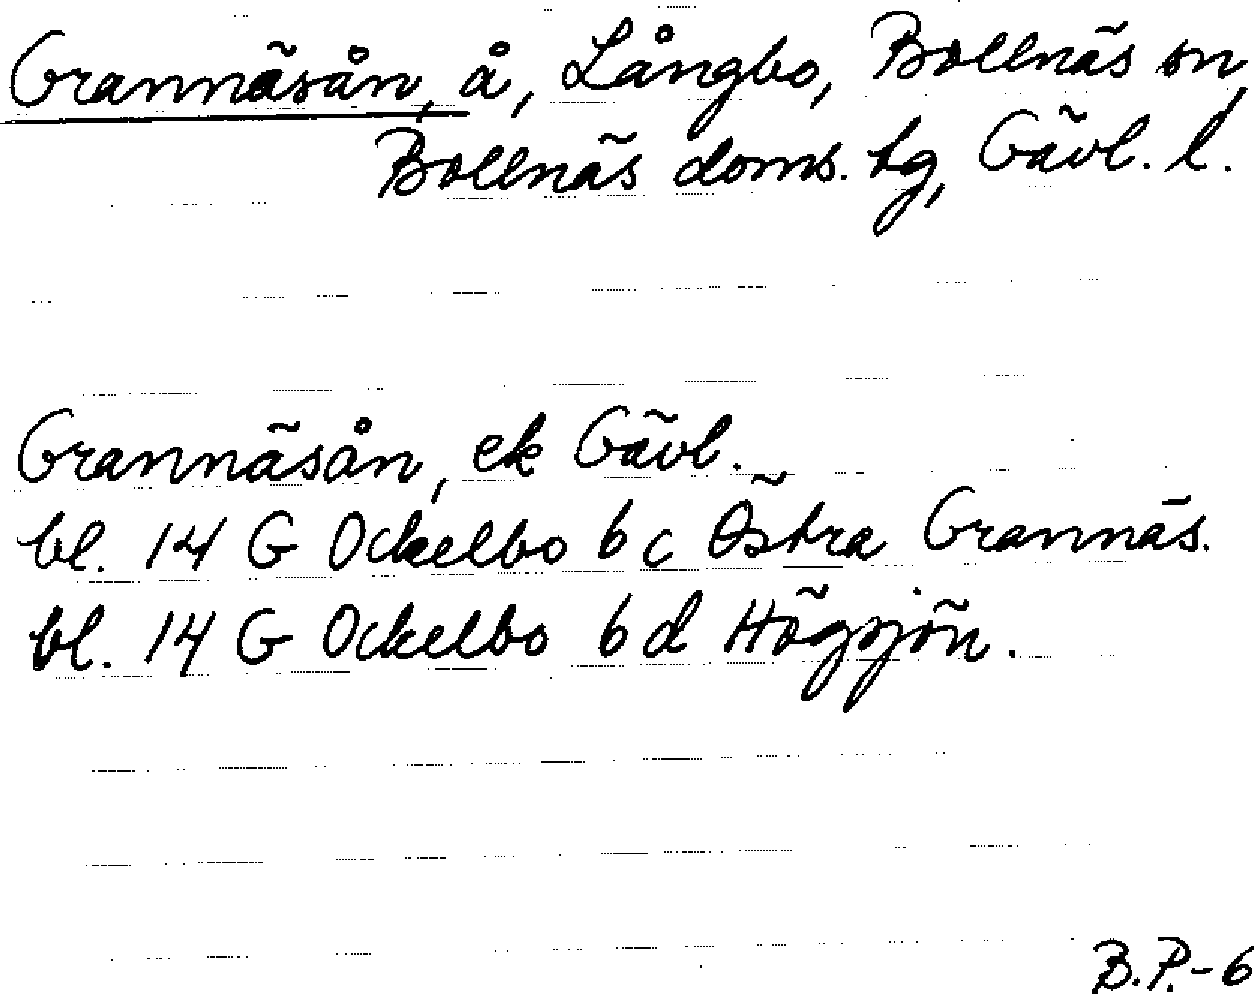 Grannäsån, å, Långbo, Bollnäs sn,
Bollnäs doms. tg, Gävl. l.
Grannäsån, ek Gävl.
bl. 14 G Ockelbo 6 c Östra Grannäs.
bl. 14 G Ockelbo 6 d Högsjön.
B.P.-6